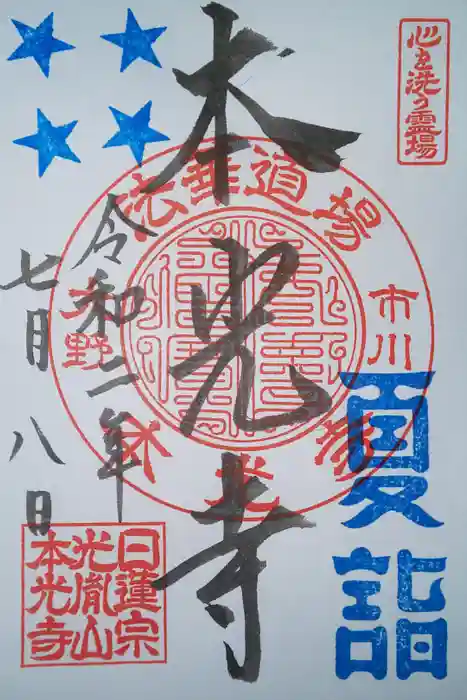 心を洗う霊場
本光寺
令和二年
七月八日
法華道場
市川
大野
本光寺
夏詣
日蓮宗
光胤山
本光寺